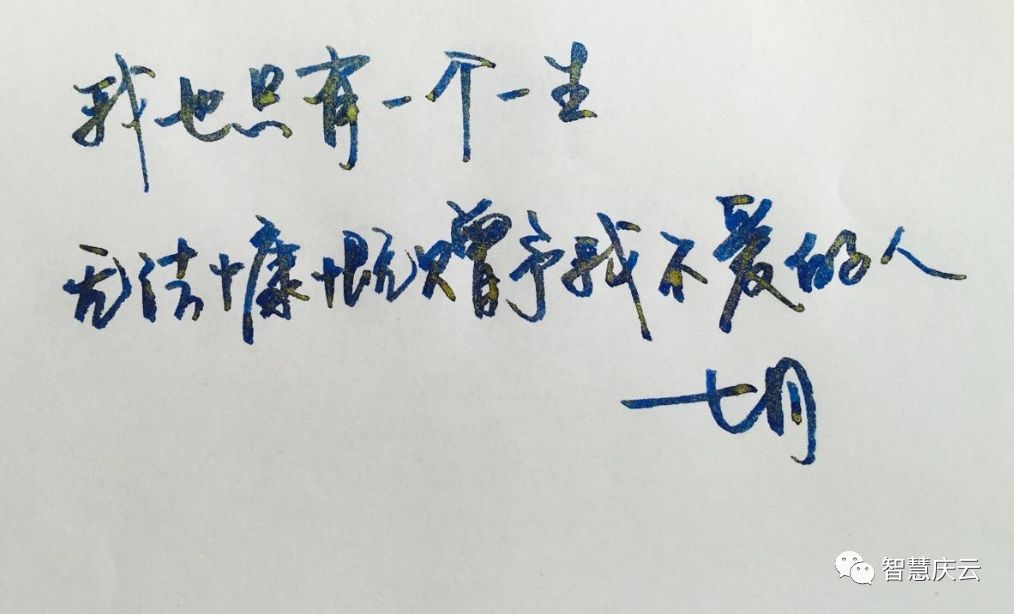 我也只有一个一生
无法慷慨赠予我不爱的人
—七月
智慧庆云